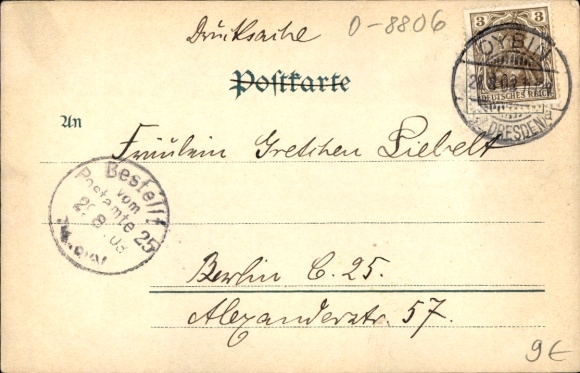 Drucksache
0-8806
3 3
DEUTSCHES REICH
OYBIN
DRESDEN
Postkarte
An
Fräulein Gretchen Liebelt
Bestellt
vom
Postamte 25
Berlin C. 25.
Alexanderstr. 57.
9€